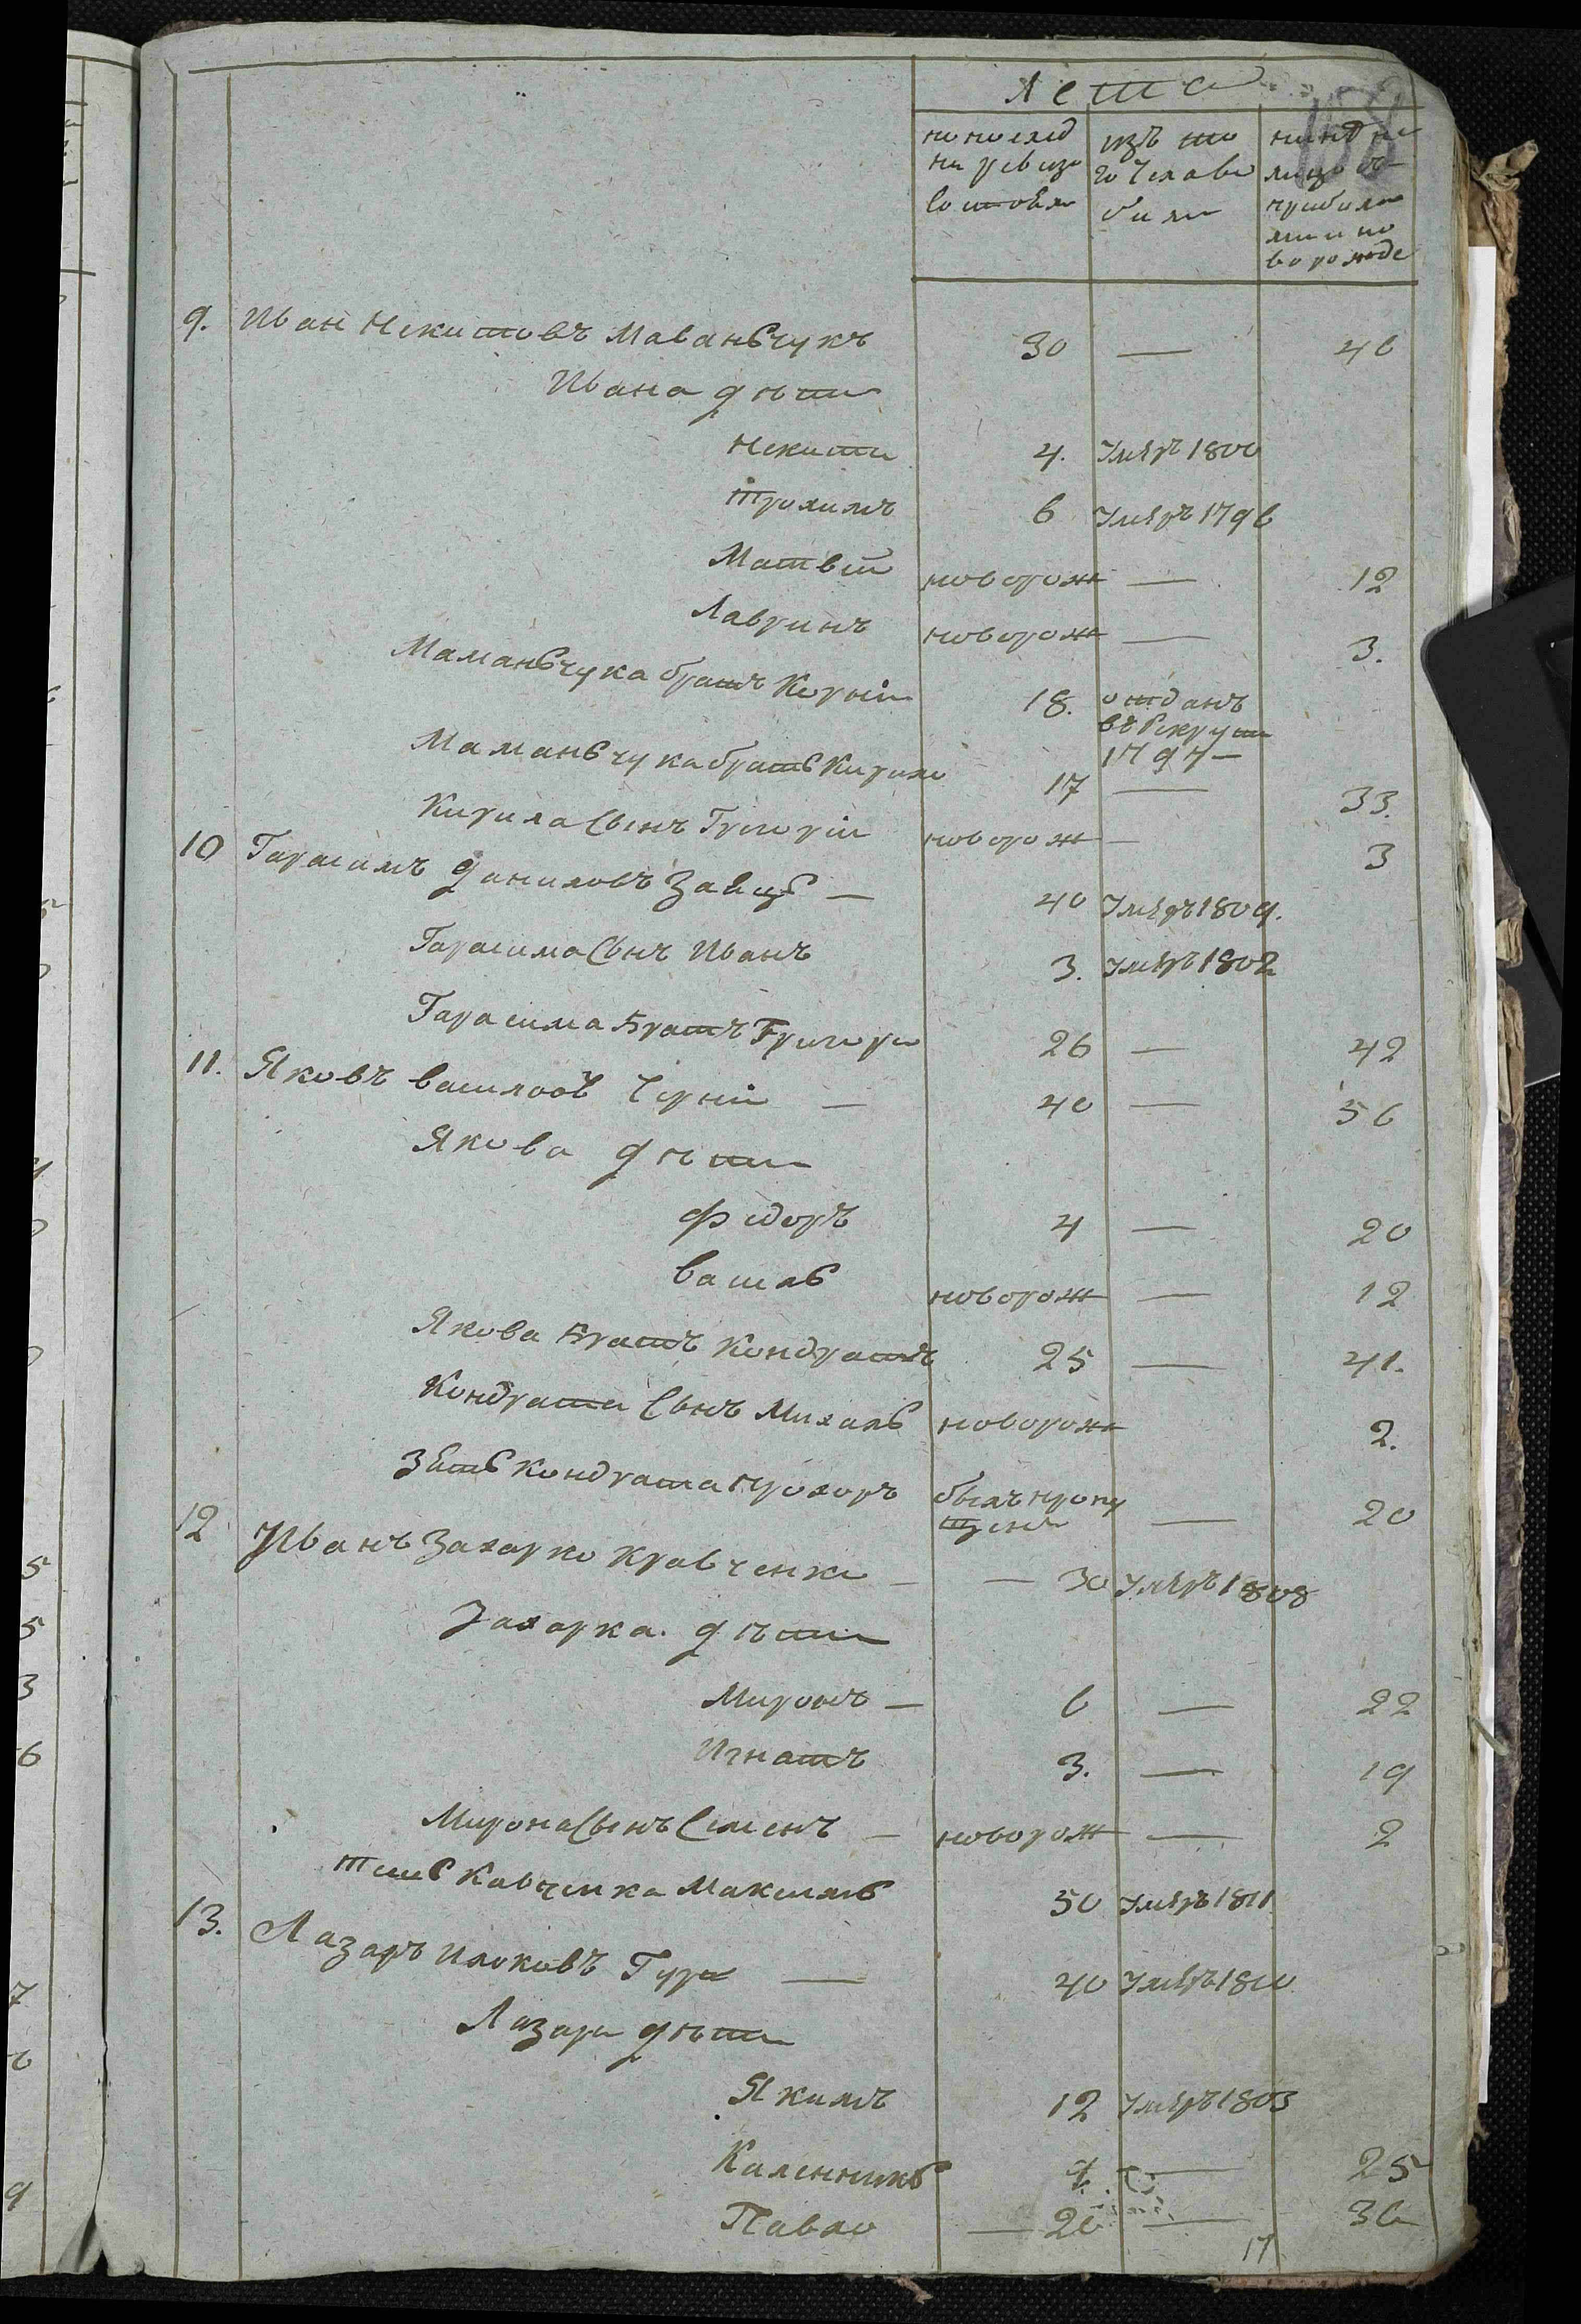 лета
по послед
ни ревизи
состояли
изъ то
го числа вы
были
ныне на
лицо съ
прибыли
ми и но
ворожде
9. Иван Некитовъ Маманьчукъ 30 — 46
Ивана дѣти
Некита 4. Умѣръ 1800
Трохимъ 6 Умѣръ 1796
Матвей новорож — 12
Лавринъ новорож — 3.
Маманьчука братъ Корней 18. отданъ
въ Рекрути
1797 —
Маманьчука братъ Кирило 17 — 33.
Кирила Сынъ Григорий новорож — 3
10 Гарасимъ Даниловъ Заецъ — 40 Умѣръ 1809.
Гарасима Сынъ Иванъ 3. Умѣръ 1802
Гарасима Братъ Григори 26 — 42
11. Яковъ василовъ Черний — 40 — 56
Якова дѣти
Федоръ 4 — 20
василь новорож — 12
Якова Братъ Кондратъ 25 — 41.
Кондрата Сынъ Михаль новорож 2.
Зять Кондрата Прохоръ былъ пропу
щенъ — 20
12 Иванъ Захарко Кравченко — — 30 Умѣръ 1808
Захарка дѣти
Миронъ — 6 — 22
Игнатъ 3. — 19
Мирона Сынъ Семенъ — новорож — 2
тесть Кавченка Максимъ 50 Умѣръ 1811
13. Лазаръ Илковъ Гура — 40 Умѣръ 1810
Лазара дѣти
Якимъ 12 Умѣръ 1803
Каленникъ — 25
Павло — 20 — 36
17